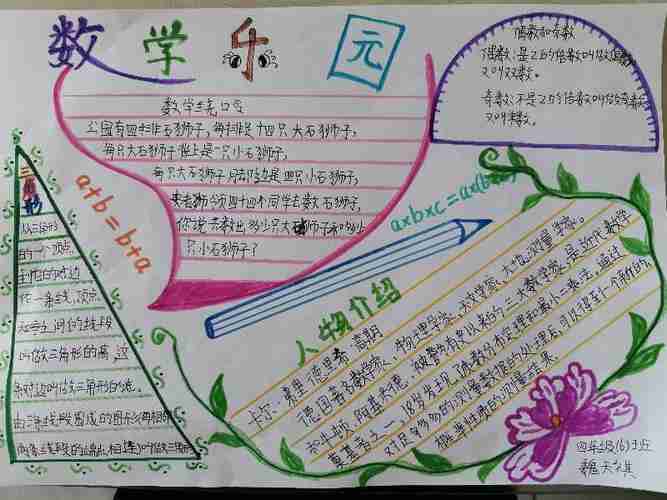 数学乐元
数学绕口令
公园有四排石狮子，每排是十四只大石狮子，
每只大石狮子背上是一只小石狮子，
每只大石狮子脚边是四只小石狮子，
史老师领四十四个同学去数石狮子，
你说共数出多少只大石狮子和多少
只小石狮子？
偶数和奇数
偶数：是2的倍数叫做偶数
又叫双数。
奇数：不是2的倍数叫做奇数
又叫单数。
三角形
从三角形
的一个顶点
到它的对边
作一条垂线，顶点
和垂足间的线段
叫做三角形的高，这
条对边叫做三角形的底。
由三条线段围成的图形（每相邻
两条线段的端点相连）叫做三角形
a+b=b+a
a×b×c=a×(b
人物介绍
卡尔·弗里德里希·高斯
德国著名数学家、物理学家、天文学家、大地测量学家。
和牛顿、阿基米德，被誉为有史以来的三大数学家。是近代数学
奠基者之一，18岁发现了质数分布定理和最小二乘法。通过
对足够多的测量数据的处理后，可以得到一个新的、
概率性质的测量结果。
四年级(6)班
魏天祺